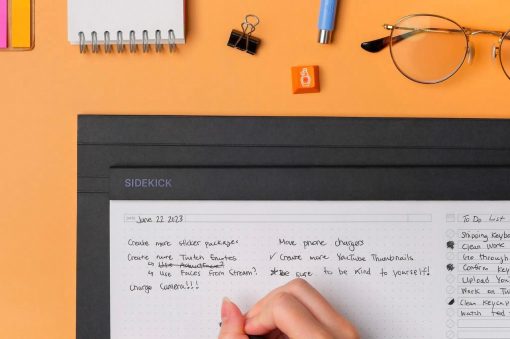 SIDEKICK
DATE June 22 2023
Create more sticker packages
Create more Twitch Emotes
↳ Use
↳ Use Faces From Stream?
Charge Camera!!!
Move phone chargers
✓ Create more YouTube Thumbnails
* Be sure to be kind to yourself!
To Do List
Shipping Keyb
Clean Work
Use through
Confirm Key
Upload You
Work on Tw
Clean Keycap
Watch Ted